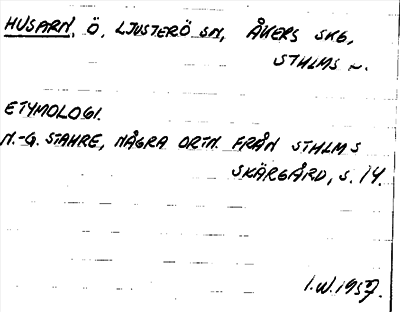 HUSARN, Ö, LJUSTERÖ SN, ÅKERS SKG,
STHLMS L.
ETYMOLOGI.
N.-G. STAHRE, NÅGRA ORTN. FRÅN STHLMS
SKÄRGÅRD, S. 14.
I.W. 1957.